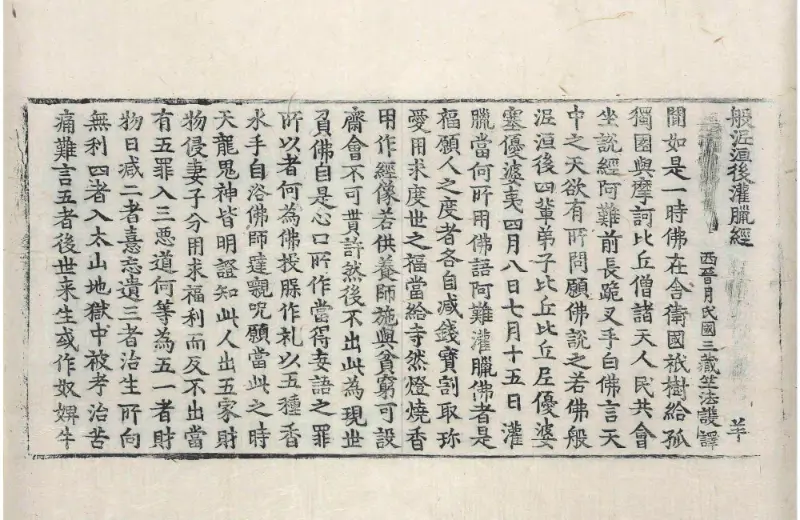 般泥洹後灌臘經 羊
西晉月氏國三藏竺法護譯
聞如是一時佛在舍衛國祇樹給孤
獨園與摩訶比丘僧諸天人民共會
坐說經阿難前長跪叉手白佛言天
中之天欲有所問願佛說之若佛般
泥洹後四輩弟子比丘比丘尼優婆
塞優婆夷四月八日七月十五日灌
臘當何所用佛語阿難灌臘佛者是
福願人之度者各自减錢寶割取珍
愛用求度世之福當給寺然燈燒香
用作經像若供養師施與貧窮可設
齋會不可貰許然後不出此為現世
負佛自是心口所作當得妄語之罪
所以者何為佛作礼以五種香
水手自浴佛師達嚫呪願當此之時
天龍鬼神皆明證知此人出五家財
物侵妻子分用求福利而反不出當
有五罪入三惡道何等為五一者財
物日减二者憙忘遺三者治生所向
無利四者入太山地獄中被考治苦
痛難言五者後世来生或作奴婢牛